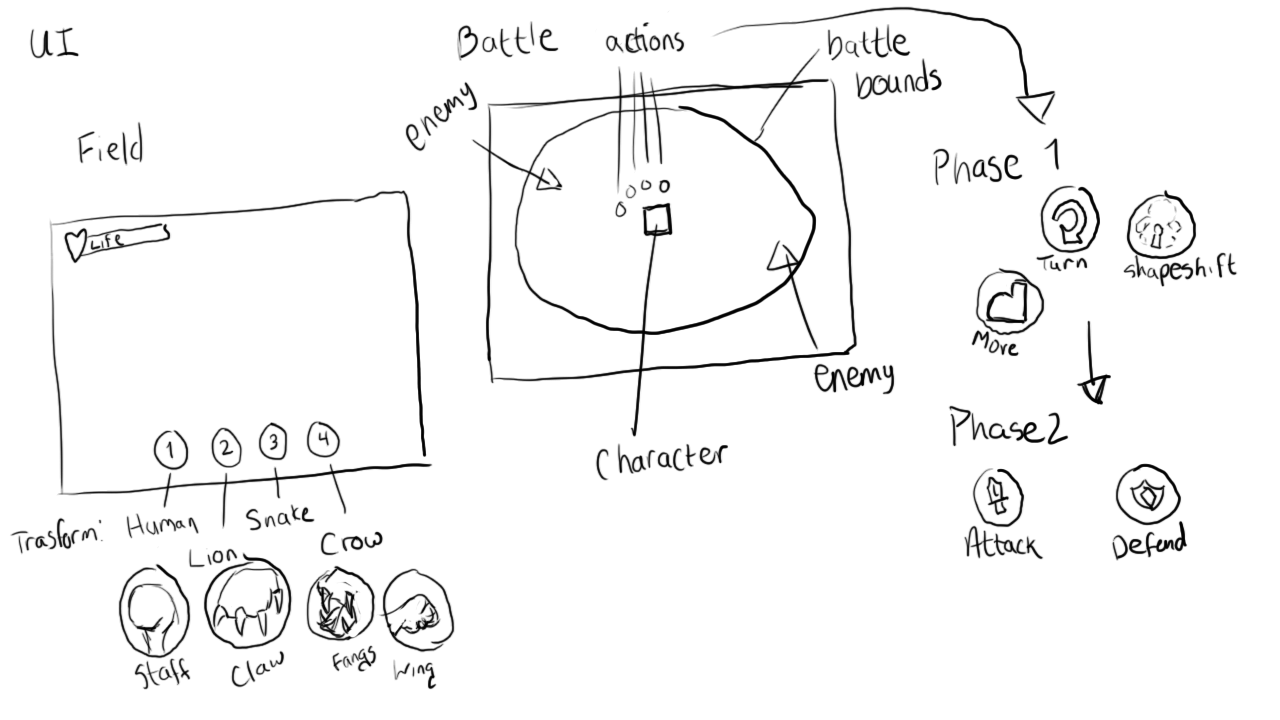 UI
Field
Life
1 2 3 4
Trasform: Human
Lion
Snake
Crow
Staff
Claw
Fangs
Wing
Battle
actions
battle
bounds
enemy
enemy
Character
Phase 1
Turn
shapeshift
Move
Phase 2
Attack
Defend